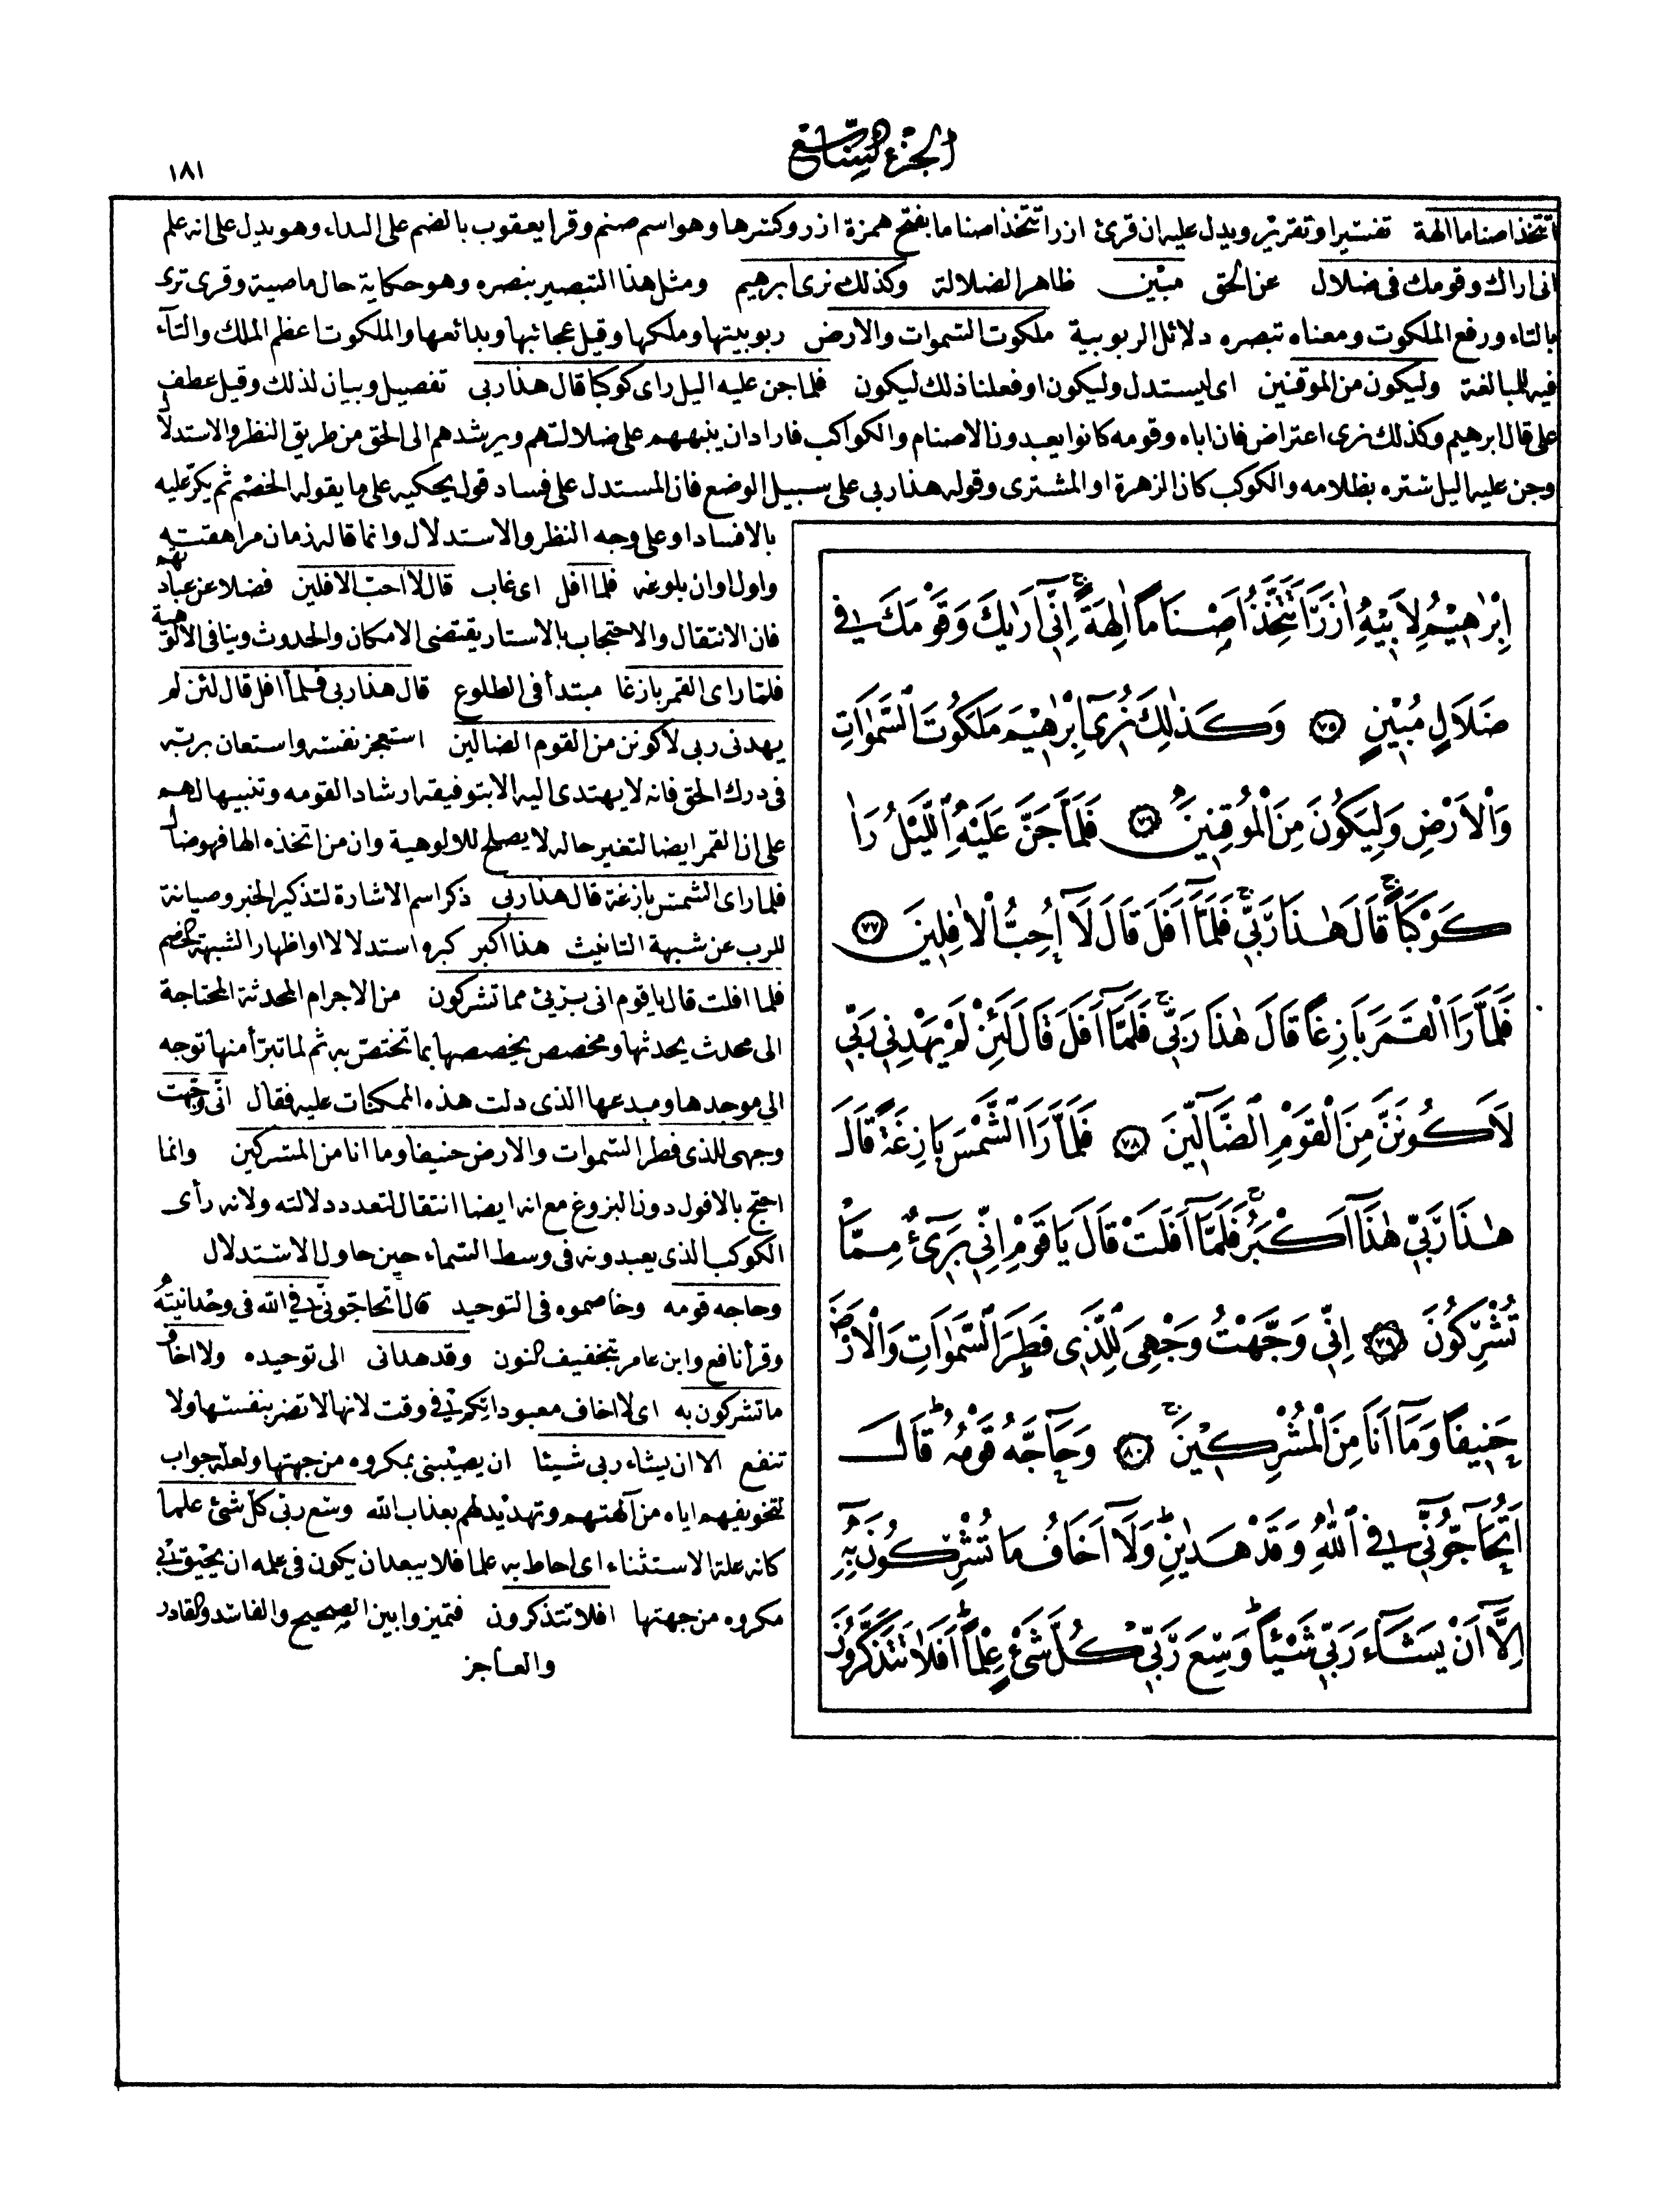 الجزء السابع
١٨١
اتتخذ اصناما الهة تفسيرا وتقريرا ويدل عليه ان قرئ ازرا تتخذ اصناما بفتح همزة ازر وكسرها وهو اسم صنم وقرا يعقوب بالضم على النداء وهو يدل على انه علم
انى اراك وقومك فى ضلال عن الحق مبين ظاهر الضلالة وكذلك نرى ابرهيم ومثل هذا التبصير بنصره وهو حكاية حال ماضية وقرى ترى
بالتاء ورفع الملكوت ومعناه تبصره دلائل الربوبية ملكوت السموات والارض ربوبيتها وملكها وقيل عجائبها وبدائعها والملكوت اعظم الملك والتاء
فيه للمبالغة وليكون من الموقنين اى ليستدل وليكون او فعلنا ذلك ليكون فلما جن عليه اليل راى كوكبا قال هذا ربى تفصيل وبيان لذلك وقيل عطف
على قال ابرهيم وكذلك نرى اعتراض فان اباه وقومه كانوا يعبدون الاصنام والكواكب فاراد ان ينبههم على ضلالتهم ويرشدهم الى الحق من طريق النظر والاستدلال
وجن عليه اليل ستره بظلامه والكوكب كان الزهرة او المشترى وقوله هذا ربى على سبيل الوضع فان المستدل على فساد قول يحكيه على ما يقوله الخصم ثم يكر عليه
بالافساد او على وجه النظر والاستدلال وانما قاله زمان مراهقته
واول اوان بلوغه فلما افل اى غاب قال لا احب الافلين فضلا عن عبادتهم
فان الانتقال والاحتجاب بالاستار يقتضى الامكان والحدوث وينافى الالوهية
فلما راى القمر بازغا مبتدأ فى الطلوع قال هذا ربى فلما افل قال لئن لم
يهدنى ربى لأكونن من القوم الضالين استعجز نفسه واستعان بربه
فى درك الحق فانه لا يهتدى اليه الا بتوفيقه ارشادا لقومه وتنبيها لهم
على ان القمر ايضا لتغير حاله لا يصلح للالوهية وان من اتخذه الها فهو ضال
فلما راى الشمس بازغة قال هذا ربى ذكر اسم الاشارة لتذكير الخبر وصيانة
للرب عن شبهة التانيث هذا اكبر كبره استدلالا او اظهارا لشبهة الخصم
فلما افلت قال يا قوم انى برئ مما تشركون من الاجرام المحدثة المحتاجة
الى محدث يحدثها ومخصص يخصصها بما تختص به ثم لما تبرأ منها توجه
الى موجدها ومبدعها الذى دلت هذه الممكنات عليه فقال انى وجهت
وجهى للذى فطر السموات والارض حنيفا وما انا من المشركين وانما
احتج بالافول دون البزوغ مع انه ايضا انتقال لتعدد دلالته ولانه رأى
الكوكب الذى يعبدونه فى وسط السماء حين حاول الاستدلال
وحاجه قومه وخاصموه فى التوحيد قال اتحاجونى فى الله فى وحدانيته
وقرأ نافع وابن عامر بتخفيف النون وقد هدانى الى توحيده ولا اخاف
ما تشركون به اى لا اخاف معبوداتكم فى وقت لانها لا تضر بنفسها ولا
تنفع الا ان يشاء ربى شيئا ان يصيبنى بمكروه من جهتها ولعله جواب
لتخويفهم اياه من آلهتهم وتهديد لهم بعذاب الله وسع ربى كل شئ علما
كانه علة الاستثناء اى احاط به علما فلا يبعد ان يكون فى علمه ان يحيق بى
مكروه من جهتها افلا تتذكرون فتميزوا بين الصحيح والفاسد والقادر
والعاجز
اِبْرٰهِيْمُ لِاَبِيْهِ اٰزَرَ اَتَتَّخِذُ اَصْنَامًا اٰلِهَةً اِنِّىٓ اَرٰيكَ وَقَوْمَكَ فِى
ضَلَالٍ مُبٖينٍ ﴿٧٥﴾ وَكَذٰلِكَ نُرٖىٓ اِبْرٰهٖيمَ مَلَكُوتَ السَّمٰوَاتِ
وَالْاَرْضِ وَلِيَكُونَ مِنَ الْمُوقِنٖينَ ﴿٧٦﴾ فَلَمَّا جَنَّ عَلَيْهِ الَّيْلُ رَاٰ
كَوْكَبًا قَالَ هٰذَا رَبّٖى فَلَمَّٓا اَفَلَ قَالَ لَٓا اُحِبُّ الْاٰفِلٖينَ ﴿٧٧﴾
فَلَمَّا رَاَ الْقَمَرَ بَازِغًا قَالَ هٰذَا رَبّٖى فَلَمَّٓا اَفَلَ قَالَ لَئِنْ لَمْ يَهْدِنٖى رَبّٖى
لَاَكُونَنَّ مِنَ الْقَوْمِ الضَّٓالّٖينَ ﴿٧٨﴾ فَلَمَّا رَاَ الشَّمْسَ بَازِغَةً قَالَ
هٰذَا رَبّٖى هٰذَٓا اَكْبَرُ فَلَمَّٓا اَفَلَتْ قَالَ يَا قَوْمِ اِنّٖى بَرٖٓىءٌ مِمَّا
تُشْرِكُونَ ﴿٧٩﴾ اِنّٖى وَجَّهْتُ وَجْهِىَ لِلَّذٖى فَطَرَ السَّمٰوَاتِ وَالْاَرْضَ
حَنٖيفًا وَمَٓا اَنَا مِنَ الْمُشْرِكٖينَ ﴿٨٠﴾ وَحَٓاجَّهُ قَوْمُهُ قَالَ
اَتُحَٓاجُّٓونّٖى فِى اللّٰهِ وَقَدْ هَدٰينِ وَلَٓا اَخَافُ مَا تُشْرِكُونَ بِهٖٓ
اِلَّٓا اَنْ يَشَٓاءَ رَبّٖى شَيْـًٔا وَسِعَ رَبّٖى كُلَّ شَىْءٍ عِلْمًا اَفَلَا تَتَذَكَّرُونَ